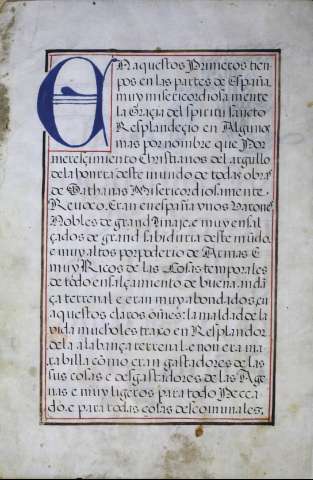 EN aquestos Primeros tien
pos en las partes de España
muy misericordiosamente
la Graçia del spiritu sancto
Resplandeçio en Alguno
mas por nombre que Por
mereçimiento christianos del argullo
de la honrra deste mundo de todas obras
de Sathanas Misericordiosamente.
Reuoco. Eran en españa vnos Varone
Nobles de grand linaje. e muy ensal
çados de grand sabiduria deste mũdo.
e muy altos por poderio de Armas E
muy Ricos de las Cosas temporales
de todo ensalçamiento de buena andã
ça terrenal e eran muy abondados, en
aquestos claros oms: la maldad de la
vida mucho les traxo en Resplandor
de la alabança terrenal. e non era ma
rabilla cõmo eran gastadores de las
sus cosas e desgastadores de las Age
nas e muy ligeros para todo Pecca
do. e para todas cosas descomunales;